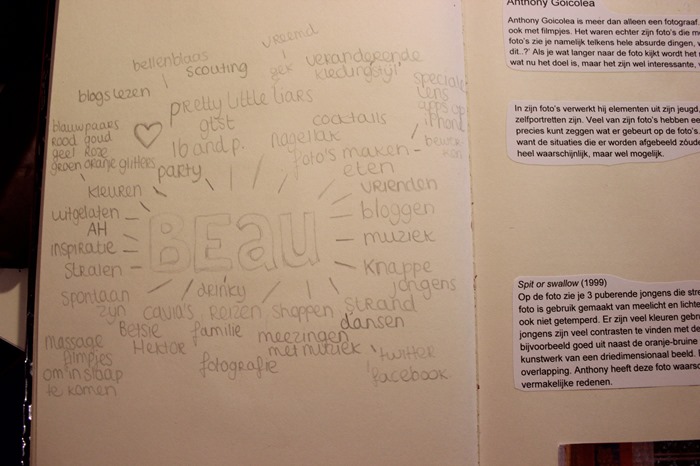 vreemd
bellenblaas
scouting
gek
veranderende
kledingstijl
blogs lezen
pretty little liars
gtst
16 and p.
cocktails
nagellak
lens
apps op
iPhone
blauw paars
rood goud
geel roze
groen oranje glitters
party
foto's maken
eten
kleuren
vrienden
uitgelaten
bloggen
AH
BEau
muziek
inspiratie
stralen
knappe
jongens
spontaan
zijn
drinky
cavia's
reizen
shoppen
strand
dansen
Betsie
Hektor
familie
meezingen
met muziek
massage
filmpjes
om in slaap
te komen
fotografie
twitter
facebook
Anthony Goicolea
Anthony Goicolea is meer dan alleen een fotograaf.
ook met filmpjes. Het waren echter zijn foto's die m
foto's zie je namelijk telkens hele absurde dingen,
dit..?' Als je wat langer naar de foto kijkt wordt het
wat nu het doel is, maar het zijn wel interessante,
In zijn foto's verwerkt hij elementen uit zijn jeugd,
zelfportretten zijn. Veel van zijn foto's hebben ee
precies kunt zeggen wat er gebeurt op de foto's.
want de situaties die er worden afgebeeld zóude
heel waarschijnlijk, maar wel mogelijk.
Spit or swallow (1999)
Op de foto zie je 3 puberende jongens die stre
foto is gebruik gemaakt van meelicht en lichte
ook niet getemperd. Er zijn veel kleuren gebr
jongens zijn veel contrasten te vinden met de
bijvoorbeeld goed uit naast de oranje-bruine
kunstwerk van een driedimensionaal beeld.
overlapping. Anthony heeft deze foto waarsc
vermakelijke redenen.